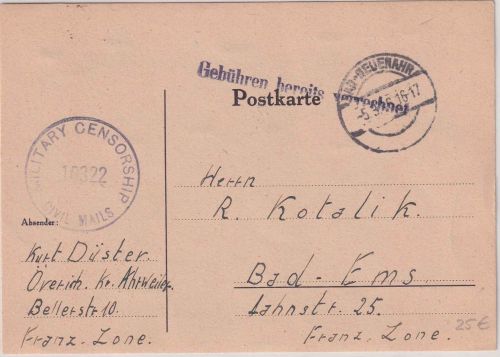 Gebühren bereits verrechnet
Postkarte
BAD-NEUENAHR
16-17
MILITARY CENSORSHIP
16322
CIVIL MAILS
Herrn
R. Kotalik.
Bad-Ems
Lahnstr. 25.
Franz. Zone.
Absender:
Kurt Düster.
Överich. Kr. Ahrweiler
Bellerstr 10.
Franz. Zone.
25€